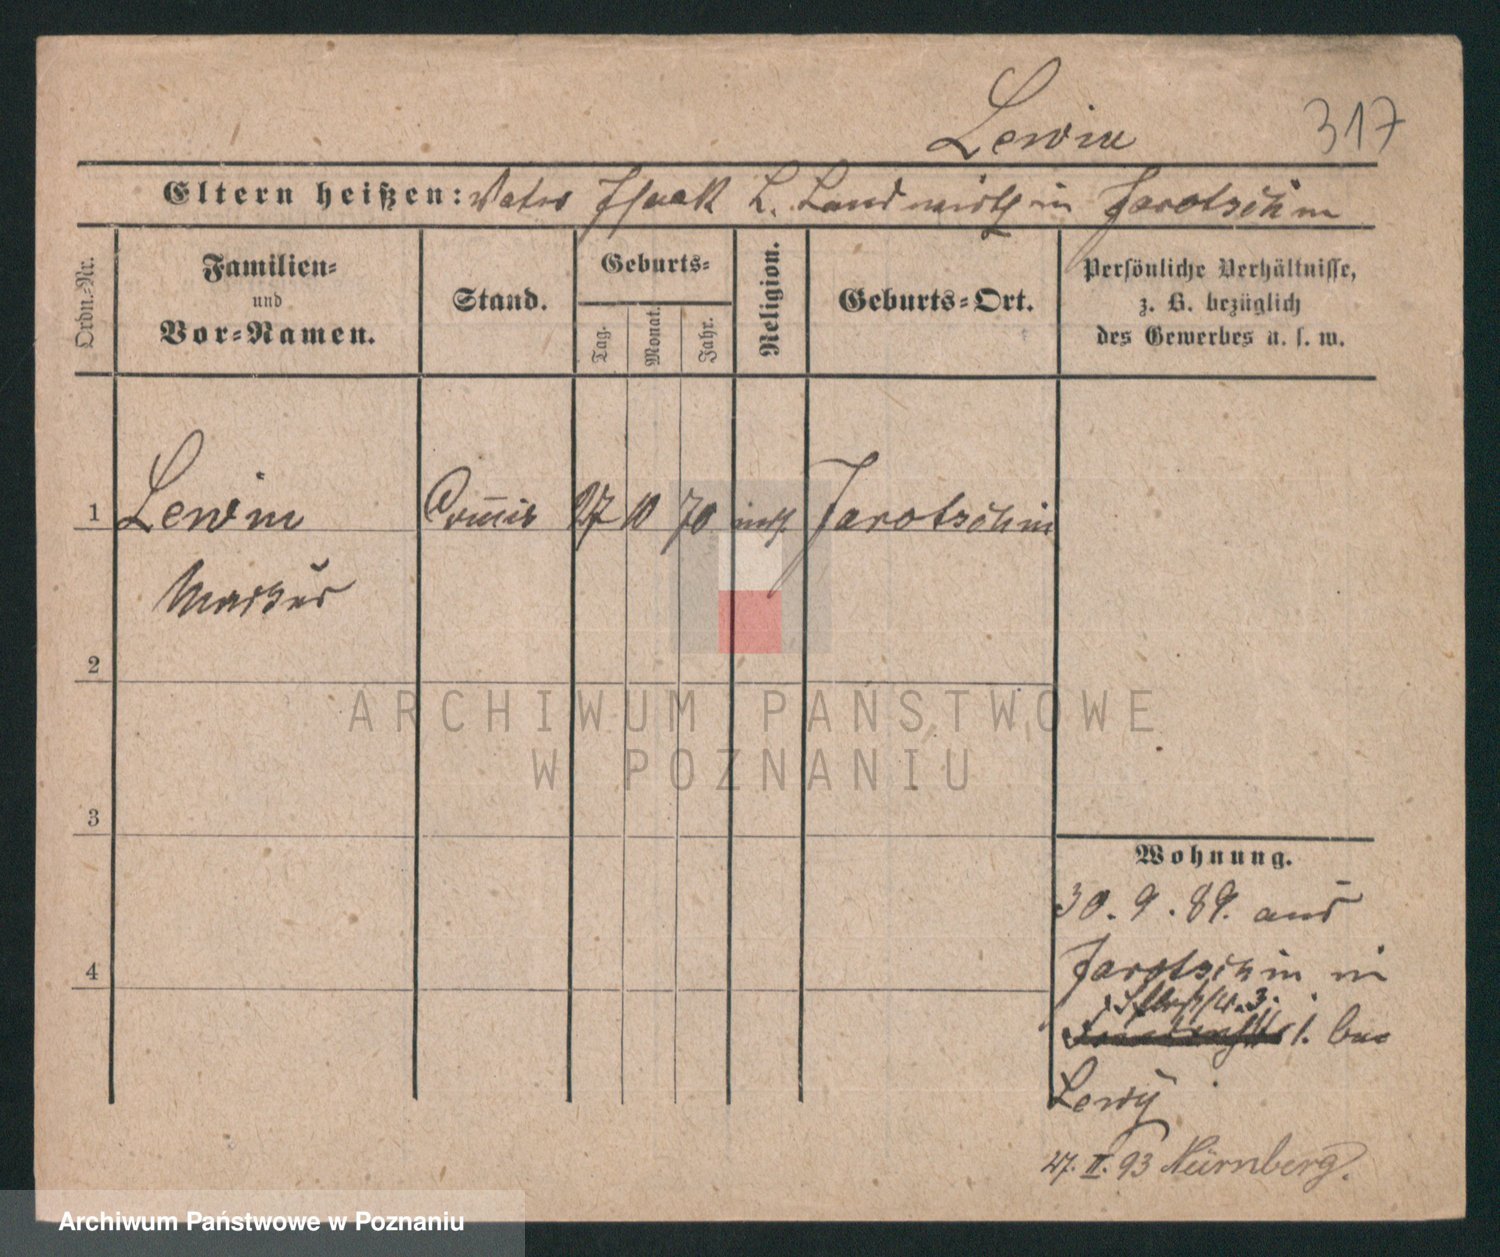 Lewin
317
Eltern heißen: Vater Isaak L. Landwirth in Jarotschin
Ordn.-Nr.
Familien-
und
Vor-Namen.
Stand.
Geburts-
Tag.
Monat.
Jahr.
Religion.
Geburts-Ort.
Persönliche Verhältnisse,
z. B. bezüglich
des Gewerbes u. s. w.
1 Lewin Com̅is 27 10 70 Jarotschin
Markus
2
3
4
Wohnung.
30. 9. 89. aus
Jarotschin in
3.
1. bei
Lewy
27. II. 93 Nürnberg.
ARCHIWUM PAŃSTWOWE
W POZNANIU
Archiwum Państwowe w Poznaniu